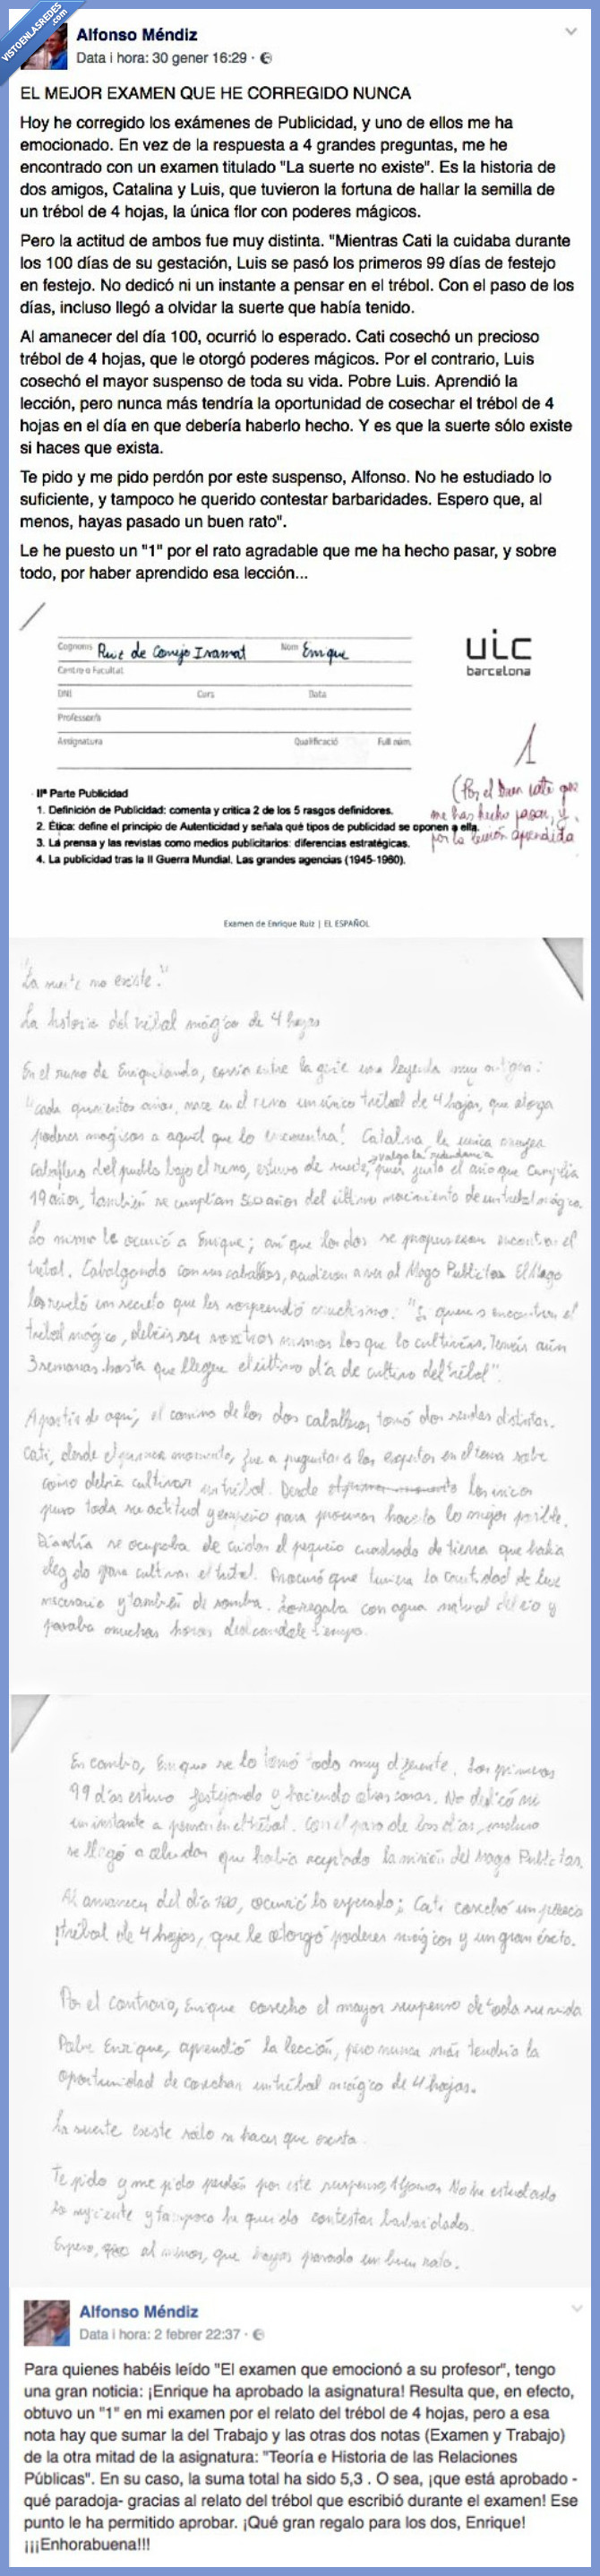 VISTOENLASREDES
.com
Alfonso Méndiz
Data i hora: 30 gener 16:29 ·
EL MEJOR EXAMEN QUE HE CORREGIDO NUNCA
Hoy he corregido los exámenes de Publicidad, y uno de ellos me ha
emocionado. En vez de la respuesta a 4 grandes preguntas, me he
encontrado con un examen titulado "La suerte no existe". Es la historia de
dos amigos, Catalina y Luis, que tuvieron la fortuna de hallar la semilla de
un trébol de 4 hojas, la única flor con poderes mágicos.
Pero la actitud de ambos fue muy distinta. "Mientras Cati la cuidaba durante
los 100 días de su gestación, Luis se pasó los primeros 99 días de festejo
en festejo. No dedicó ni un instante a pensar en el trébol. Con el paso de los
días, incluso llegó a olvidar la suerte que había tenido.
Al amanecer del día 100, ocurrió lo esperado. Cati cosechó un precioso
trébol de 4 hojas, que le otorgó poderes mágicos. Por el contrario, Luis
cosechó el mayor suspenso de toda su vida. Pobre Luis. Aprendió la
lección, pero nunca más tendría la oportunidad de cosechar el trébol de 4
hojas en el día en que debería haberlo hecho. Y es que la suerte sólo existe
si haces que exista.
Te pido y me pido perdón por este suspenso, Alfonso. No he estudiado lo
suficiente, y tampoco he querido contestar barbaridades. Espero que, al
menos, hayas pasado un buen rato".
Le he puesto un "1" por el rato agradable que me ha hecho pasar, y sobre
todo, por haber aprendido esa lección...
Cognoms Ruiz de Conejo Iramat Nom Enrique
Centre o Facultat
DNI Curs Data
Professor/a
Assignatura Qualificació Full núm.
uic
barcelona
1
(Por el buen rato que
me has hecho pasar, y
por la lección aprendida
IIª Parte Publicidad
1. Definición de Publicidad: comenta y critica 2 de los 5 rasgos definidores.
2. Ética: define el principio de Autenticidad y señala qué tipos de publicidad se oponen a ella.
3. La prensa y las revistas como medios publicitarios: diferencias estratégicas.
4. La publicidad tras la II Guerra Mundial. Las grandes agencias (1945-1960).
Examen de Enrique Ruiz | EL ESPAÑOL
"La suerte no existe."
La historia del trébol mágico de 4 hojas
En el reino de Enriquelandia, corría entre la gente una leyenda muy antigua:
"cada quinientos años, nace en el reino un único trébol de 4 hojas, que otorga
poderes mágicos a aquel que lo encuentra! Catalina, la única mujer
valga la redundancia
caballero del pueblo bajo el reino, estuvo de suerte, pues justo el año que cumplía
19 años, también se cumplían 500 años del último nacimiento de un trébol mágico.
Lo mismo le ocurrió a Enrique; así que los dos se propusieron encontrar el
trébol. Cabalgando con sus caballos, acudieron a ver al Mago Publicitas. El Mago
les reveló un secreto que les sorprendió muchísimo: "Si queréis encontrar el
trébol mágico, debéis ser vosotros mismos los que lo cultivéis. Tenéis aún
3 semanas hasta que llegue el último día de cultivo del trébol".
A partir de aquí, el camino de los dos caballeros tomó dos sendas distintas.
Cati, desde el primer momento, fue a preguntar a los expertos en el tema sobre
cómo debía cultivar un trébol. Desde el primer momento
puso toda su actitud y empeño para procurar hacerlo lo mejor posible.
Día a día se ocupaba de cuidar el pequeño cuadrado de tierra que había
elegido para cultivar el trébol. Procuró que tuviera la cantidad de luz
necesaria y también de sombra. Lo regaba con agua natural del río y
pasaba muchas horas dedicándole tiempo.
En cambio, Enrique se lo tomó todo muy diferente. Los primeros
99 días estuvo festejando y haciendo otras cosas. No dedicó ni
un instante a pensar en el trébol. Con el paso de los días, incluso
se llegó a olvidar que había aceptado la misión del Mago Publicitas.
Al amanecer del día 100, ocurrió lo esperado: Cati cosechó un precioso
trébol de 4 hojas, que le otorgó poderes mágicos y un gran éxito.
Por el contrario, Enrique cosechó el mayor suspenso de toda su vida
Pobre Enrique, aprendió la lección, pero nunca más tendría la
oportunidad de cosechar un trébol mágico de 4 hojas.
La suerte existe sólo si haces que exista.
Te pido y me pido perdón por este suspenso, Alfonso. No he estudiado
lo suficiente y tampoco he querido contestar barbaridades.
Espero, que al menos, que hayas pasado un buen rato.
Alfonso Méndiz
Data i hora: 2 febrer 22:37 ·
Para quienes habéis leído "El examen que emocionó a su profesor", tengo
una gran noticia: ¡Enrique ha aprobado la asignatura! Resulta que, en efecto,
obtuvo un "1" en mi examen por el relato del trébol de 4 hojas, pero a esa
nota hay que sumar la del Trabajo y las otras dos notas (Examen y Trabajo)
de la otra mitad de la asignatura: "Teoría e Historia de las Relaciones
Públicas". En su caso, la suma total ha sido 5,3 . O sea, ¡que está aprobado -
qué paradoja- gracias al relato del trébol que escribió durante el examen! Ese
punto le ha permitido aprobar. ¡Qué gran regalo para los dos, Enrique!
¡¡¡Enhorabuena!!!